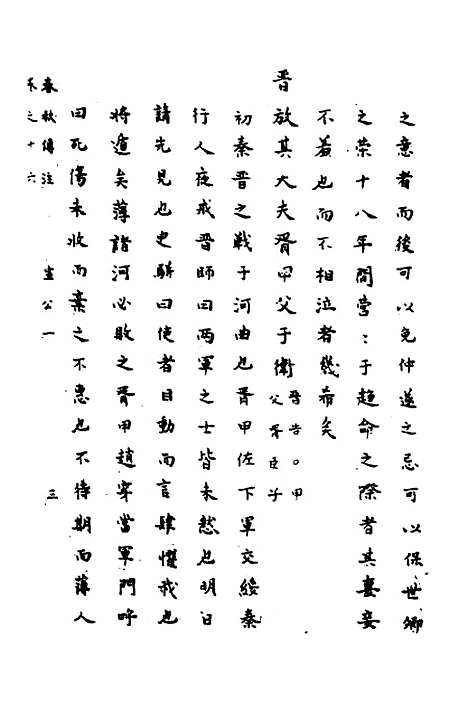 之意者而後可以免仲遂之忌可以保世卿
之榮十八年間營〻于趨命之際者其妻妾
不羞也而不相泣者幾希矣
晋放其大夫胥甲父于衛晉告。甲父胥臣子
初秦晋之戰于河曲也胥甲佐下軍交綏秦
行人夜戒晋師曰兩軍之士皆未憖也明日
請先見也史駢曰使者目動而言肆懼我也
將遁矣薄諸河必敗之胥甲趙穿當軍門呼
曰死傷未收而棄之不惠也不待期而薄人
春秋傳注 宣公一 三
卷之十六